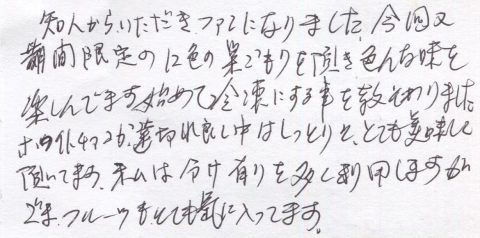 知人からいただきファンになりました。今回又
期間限定の12色の巣ごもりを頂き色んな味を
楽しんでます。始めて冷凍にする事を教わりました
ホワイトチョコが歯切れ良く中はしっとりと、とても美味しく
頂いてます。私は分け有りを多く利用しますが
フルーツもとても気に入ってます。